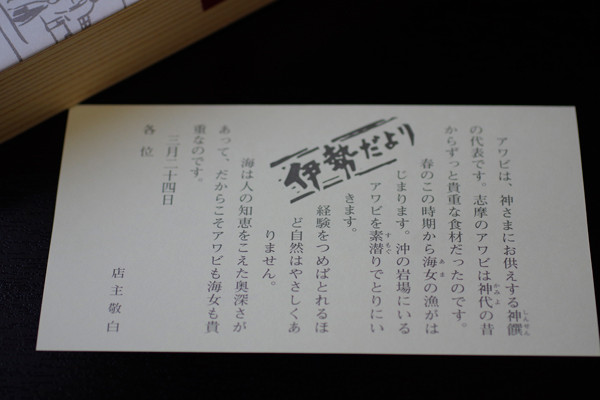 伊勢だより
アワビは、神さまにお供えする神饌
の代表です。志摩のアワビは神代の昔
からずっと貴重な食材だったのです。
春のこの時期から海女の漁がは
じまります。沖の岩場にいる
アワビを素潜りでとりにい
きます。
経験をつめばとれるほ
ど自然はやさしくあ
りません。
海は人の知恵をこえた奥深さが
あって、だからこそアワビも海女も貴
重なのです。
三月二十四日
店主敬白
各位